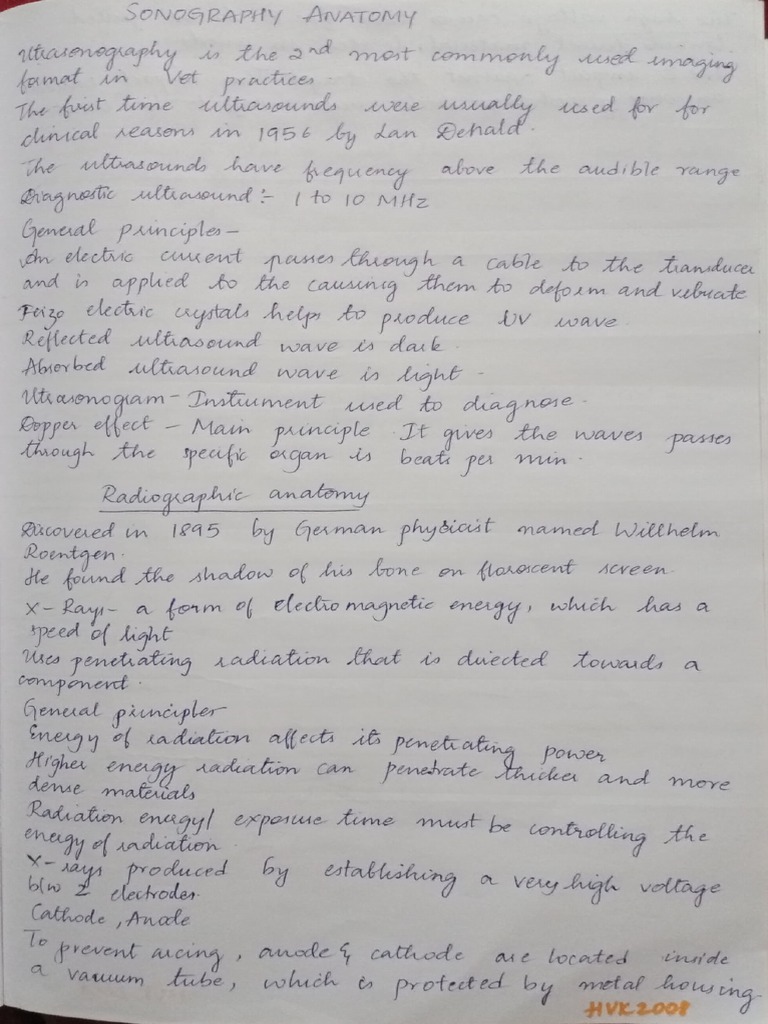 SONOGRAPHY ANATOMY
Utrasonography is the 2nd most commonly used imaging
format in Vet practices.
The first time ultrasounds were usually used for for
clinical reasons in 1956 by Lan Dehald.
The ultrasounds have frequency above the audible range
Diagnostic ultrasound :- 1 to 10 MHz
General principles -
An electric current passes through a cable to the transducer
and is applied to the causing them to deform and vebrate
Feizo electric crystals helps to produce UV wave
Reflected ultrasound wave is dark.
Absorbed ultrasound wave is light -
Utrasonogram - Instrument used to diagnose.
Dopper effect - Main principle. It gives the waves passes
through the specific organ is beats per min.
Radiographic anatomy
Discovered in 1895 by German physicist named Willhelm
Roentgen.
He found the shadow of his bone on floroscent screen.
X-Rays - a form of electro magnetic energy, which has a
speed of light
Uses penetrating radiation that is directed towards a
component.
General principles
Energy of radiation affects its penetrating power
Higher energy radiation can penetrate thicker and more
dense materials
Radiation energy/ exposure time must be controlling the
energy of radiation.
X-rays produced by establishing a very high voltage
b/w 2 electrodes.
Cathode, Anode
To prevent arcing, anode & cathode are located inside
a vacuum tube, which is protected by metal housing
HVK2008